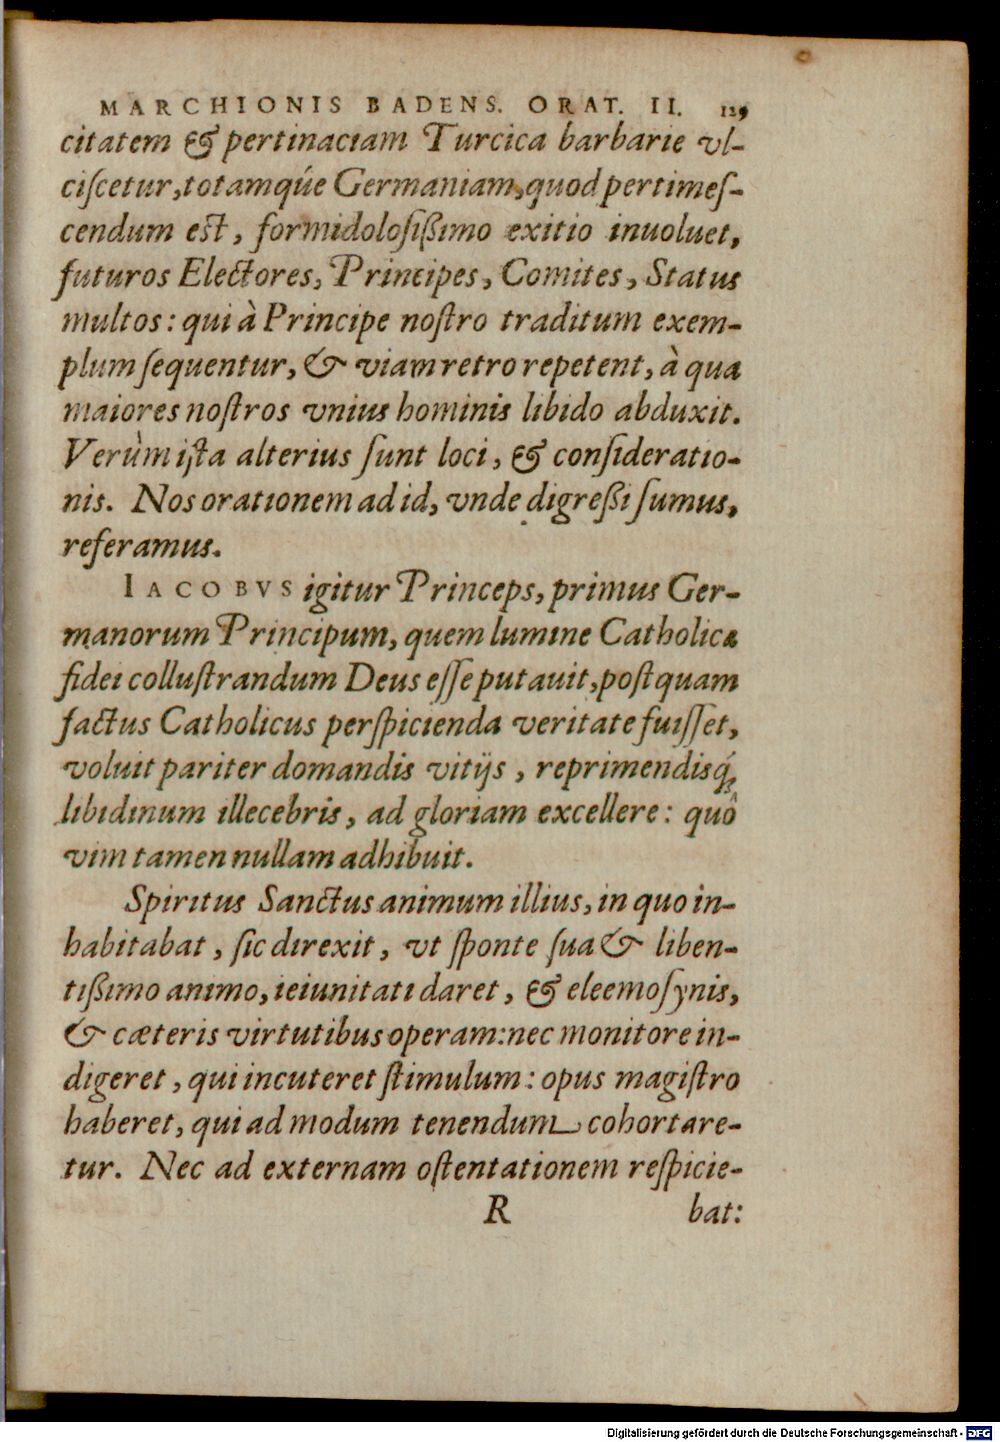 MARCHIONIS BADENS. ORAT. II. 129
citatem & pertinaciam Turcica barbarie vl-
ciſcetur, totamqúe Germaniam, quod pertimeſ-
cendum eſt, formidoloſißimo exitio inuoluet,
futuros Electores, Principes, Comites, Status
multos: qui à Principe noſtro traditum exem-
plum ſequentur, & viam retro repetent, à qua
maiores noſtros vnius hominis libido abduxit.
Verùm iſta alterius ſunt loci, & conſideratio-
nis. Nos orationem ad id, vnde digreßi ſumus,
referamus.
IACOBVS igitur Princeps, primus Ger-
manorum Principum, quem lumine Catholicæ
fidei colluſtrandum Deus eſſe putauit, poſtquam
factus Catholicus perſpicienda veritate fuiſſet,
voluit pariter domandis vitijs, reprimendisq́;
libidinum illecebris, ad gloriam excellere: quô
vim tamen nullam adhibuit.
Spiritus Sanctus animum illius, in quo in-
habitabat, ſic direxit, vt ſponte ſua & liben-
tißimo animo, ieiunitati daret, & eleemoſynis,
& cæteris virtutibus operam: nec monitore in-
digeret, qui incuteret ſtimulum: opus magiſtro
haberet, qui ad modum tenendum cohortare-
tur. Nec ad externam oſtentationem reſpicie-
R bat:
Digitalisierung gefördert durch die Deutsche Forschungsgemeinschaft - DFG